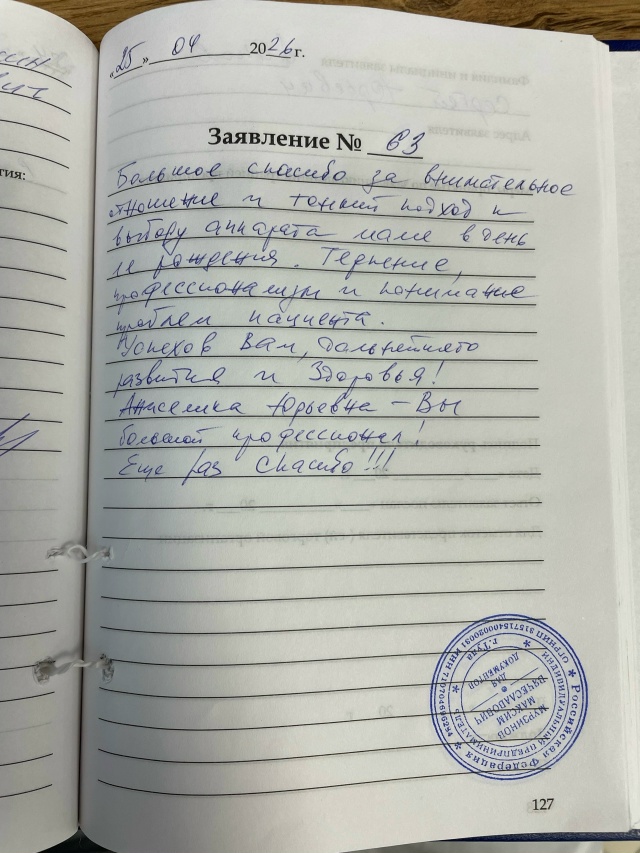 тия:
«25» 04 2026 г.
Заявление № 63
Большое спасибо за внимательное
отношение и тонкий подход к
выбору аппарата маме в день
ее рождения. Терпение,
профессионализм и понимание
проблем пациента.
Успехов Вам, дальнейшего
развития и Здоровья!
Анжелика Юрьевна – Вы
большой профессионал!
Еще раз спасибо!!!
Российская Федерация
ИНДИВИДУАЛЬНЫЙ ПРЕДПРИНИМАТЕЛЬ
г. Тула
МУРЗИНОВ
МАКСИМ
ВЯЧЕСЛАВОВИЧ
ДЛЯ
ДОКУМЕНТОВ
127